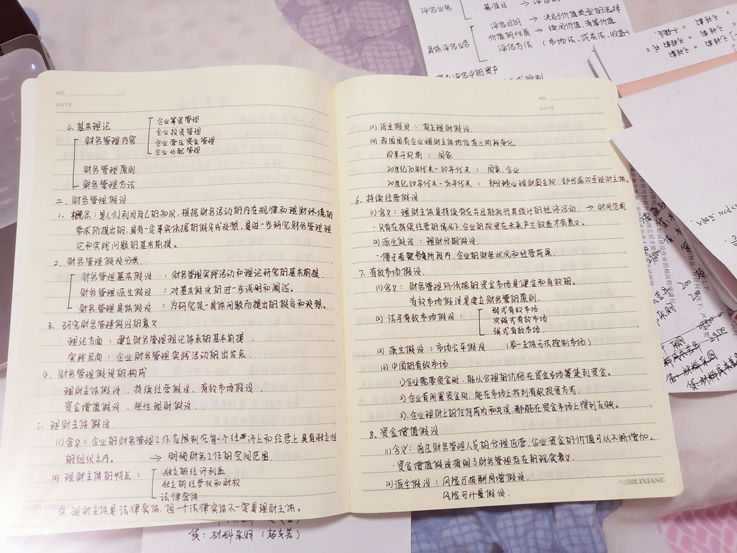 NO.
DATE
4. 基本理论
财务管理内容
企业筹资管理
企业投资管理
企业营运资金管理
企业分配管理
财务管理原则
财务管理方法
二、财务管理假设
1. 概念：是人们利用自己的知识，根据财务活动的内在规律和理财环境的
要求所提出的，具有一定事实依据的假定或设想，是进一步研究财务管理理
论和实践问题的基本前提。
2. 财务管理假设分类
财务管理基本假设：财务管理实践活动和理论研究的基本前提
财务管理派生假设：对基本假设的进一步说明和阐述。
财务管理具体假设：为研究某一具体问题而提出的假定和设想。
3. 研究财务管理假设的意义
理论方面：建立财务管理理论体系的基本前提
实践方向：企业财务管理实践活动的出发点
4. 财务管理假设的构成
理财主体假设、持续经营假设、有效市场假设、
资金增值假设、理性理财假设。
5. 理财主体假设
(1) 含义：企业的财务管理工作应限制在每一个经济上和经营上具有独立性
的组织之内。 → 明确财务工作的空间范围
(2) 理财主体的特点：
独立的经济利益
独立的经营权和财权
法律实体
理财主体是法律实体，但一个法律实体不一定是理财主体。
NO.
DATE
(3) 派生假设：自主理财假设
(4) 我国国有企业理财主体地位有三阶段变化
改革开放前：国家
20世纪70年代末-80年代末：国家、企业
6. 持续经营假设
(1) 含义：理财主体是持续存在并且能执行其预计的经济活动。 → 时间范围
(2) 派生假设：理财分期假设
7. 有效市场假设
(1) 含义：财务管理所依据的资金市场是健全和有效的。
有效市场假设是建立财务管理原则
(2) 法玛有效市场假设：
弱式有效市场
次强式有效市场
强式有效市场
(3) 派生假设：市场公平假设
(4) 中国的有效市场
1) 企业需要资金时，能以合理的价格在资金市场筹集到资金。
2) 企业有闲置资金时，能在市场上找到有效投资方式。
3) 企业理财上的任何成功和失误，都能在资金市场上得到反映。
8. 资金增值假设
(1) 含义：通过财务管理人员的合理运营，企业资金的价值可以不断增加。
资金增值假设指明了财务管理存在的现实意义
(2) 派生假设：风险与报酬同增假设
风险可计量假设